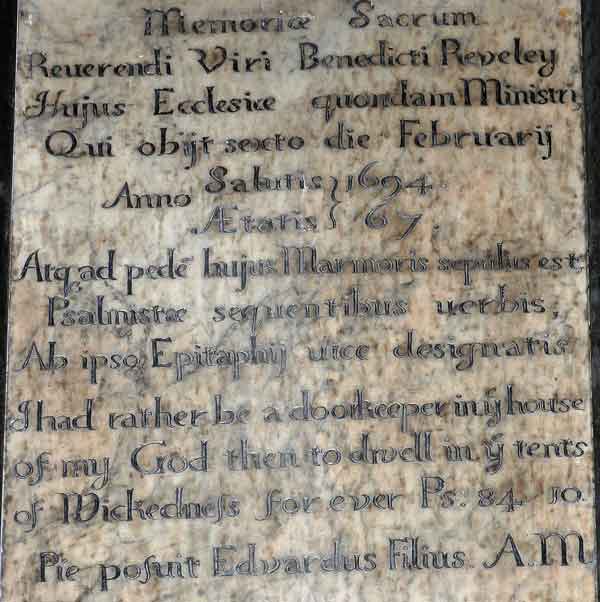 Memoriæ Sacrum
Reuerendi Viri Benedicti Reveley
Hujus Ecclesiæ quondam Ministri,
Qui obijt sexto die Februarij
Anno Salutis } 1694.
Ætatis } 67.
Atq, ad pedē hujus Marmoris sepultus est,
Psalmistæ sequentibus uerbis,
Ab ipso Epitaphij uice designatis
I had rather be a doorkeeper in yͤ house
of my God then to dwell in yͤ tents
of Wickedneſs for ever Ps. 84 10.
Pie poſuit Edvardus Filius. A.M